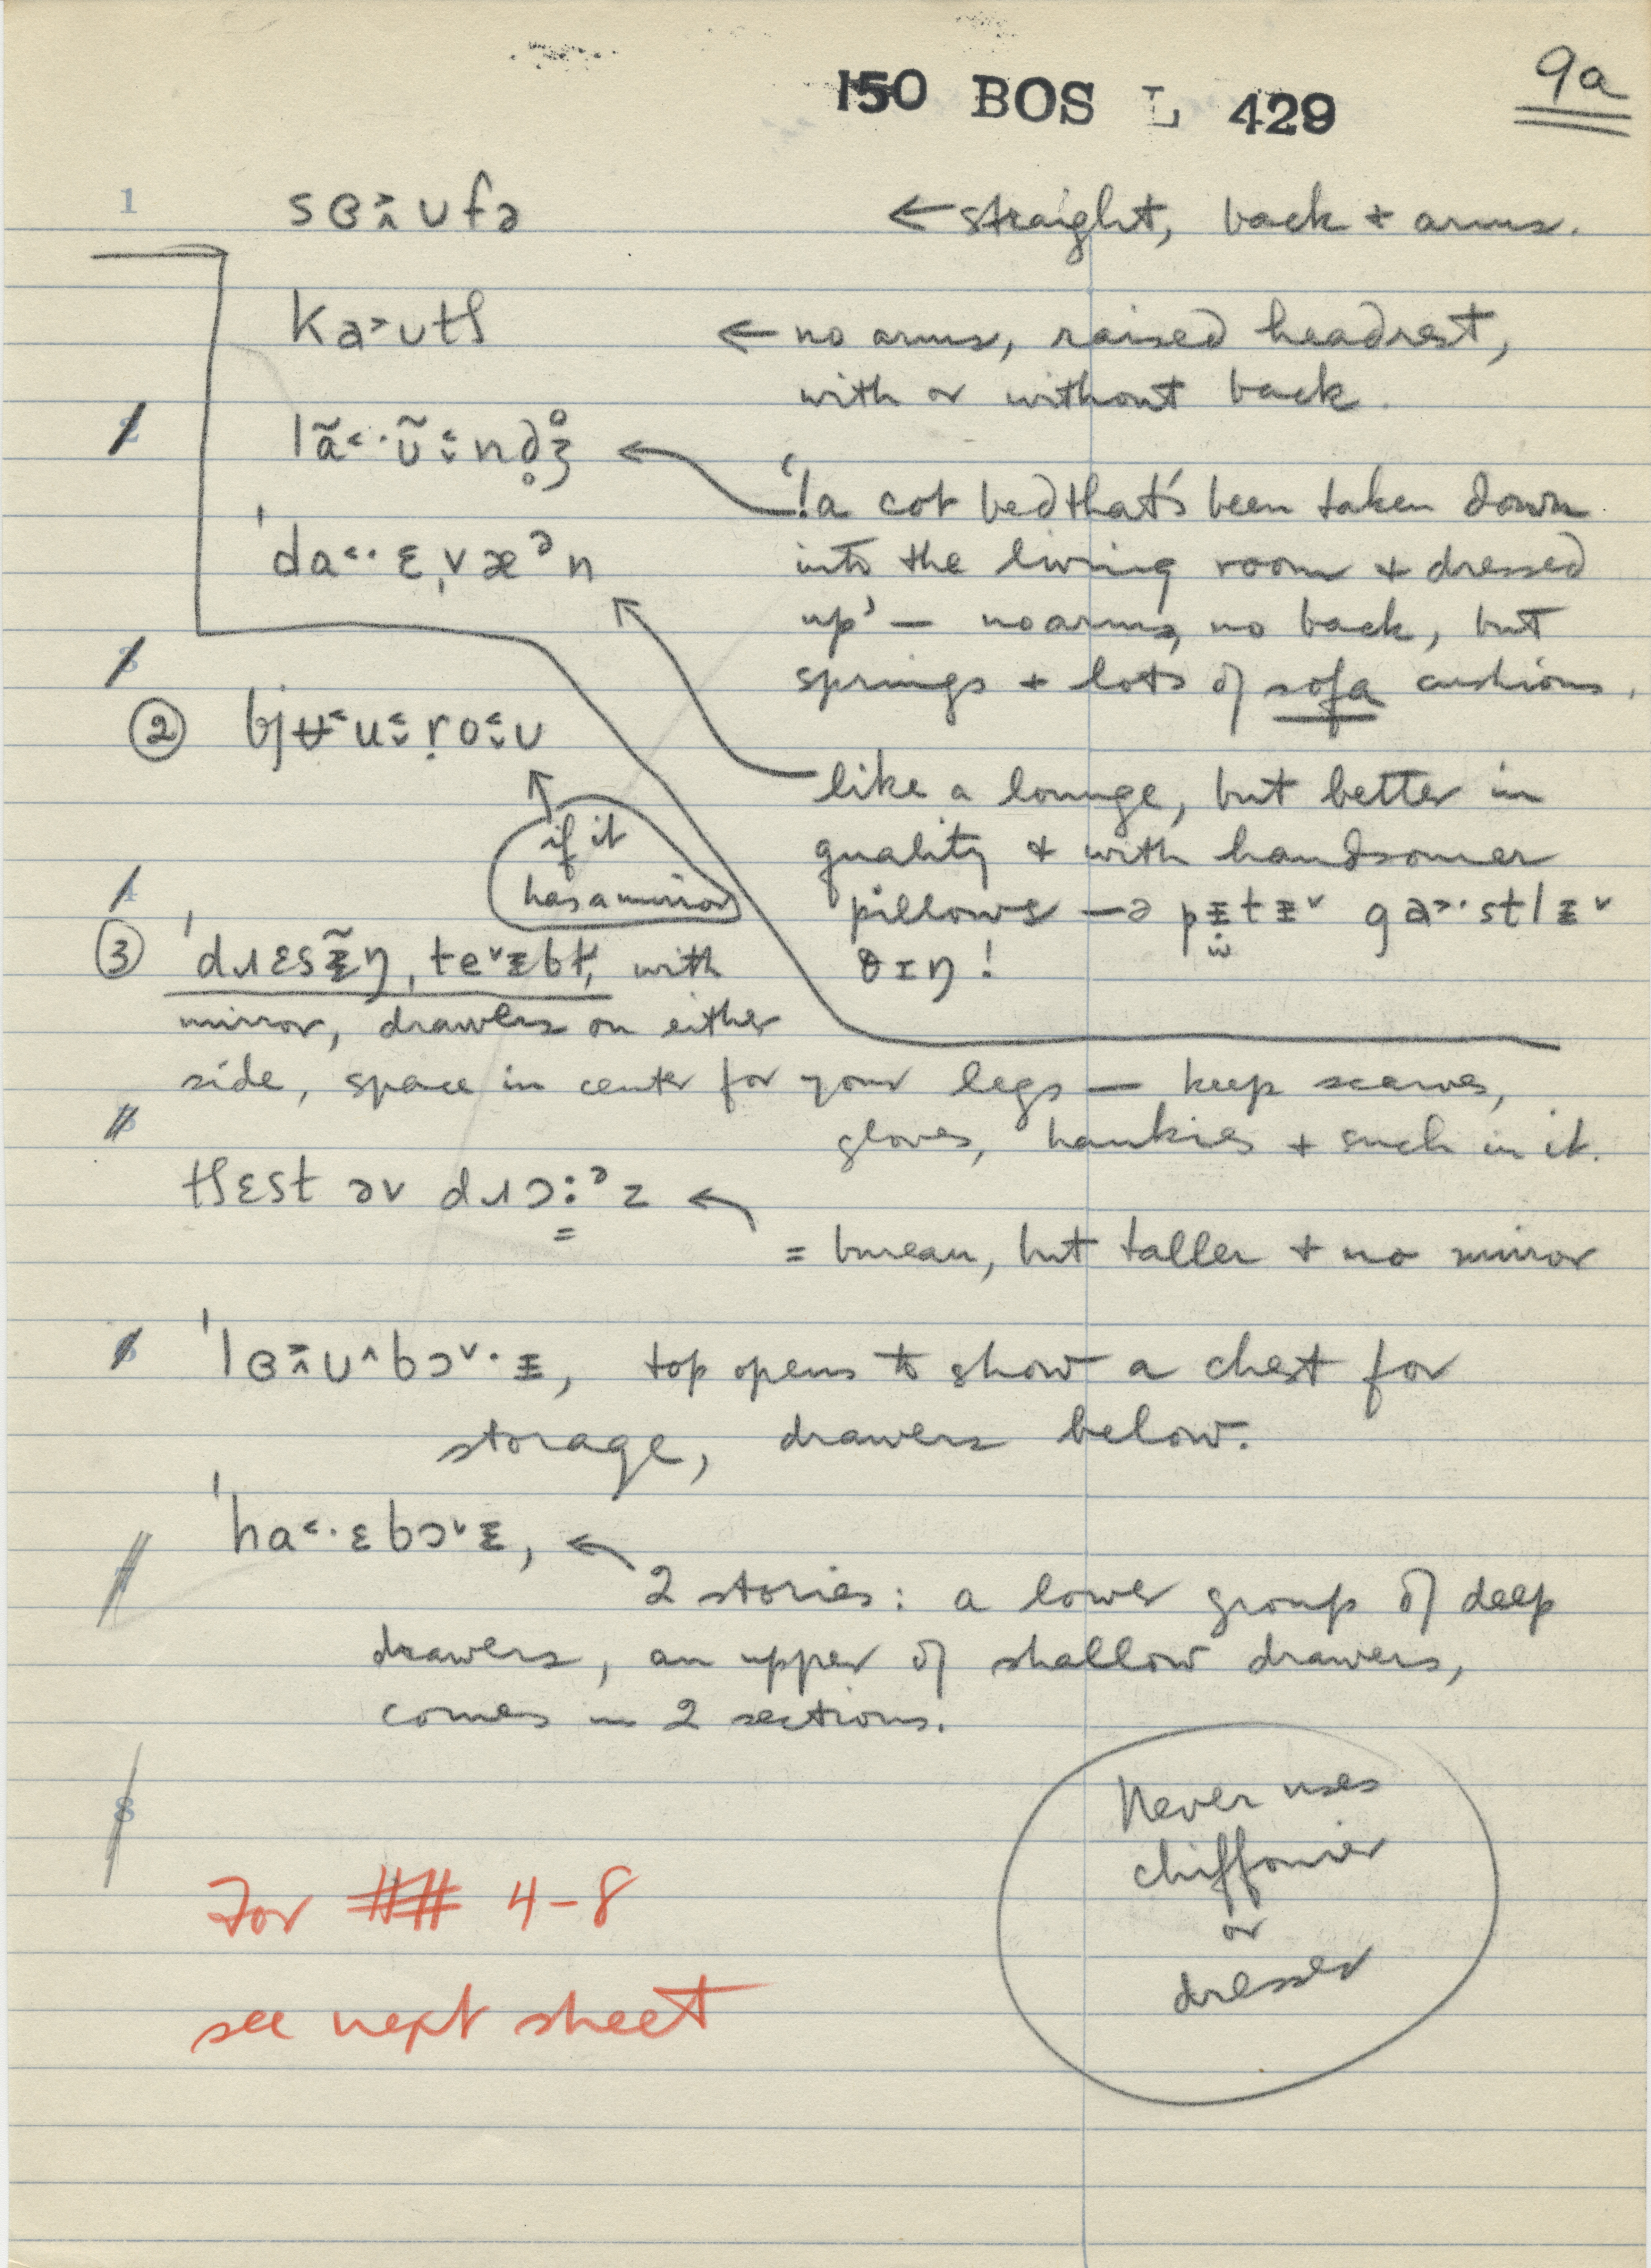 150 BOS L 429
9a
1
sɞ˃ʌʊfə
← straight, back + arms.
ka˃ʊtʃ
← no arms, raised headrest,
with or without back.
2
←
'! a cot bed that's been taken down
into the living room + dressed
up' — no arms, no back, but
springs + lots of sofa cushions.
ˈda˂·ɛˌvæᵊn
like a lounge, but better in
quality + with handsomer
pillows —
θɪŋ!
3
②
if it
has a mirror
4
③
with
mirror, drawers on either
side, space in center for your legs — keep scarves,
gloves, hankies + such in it.
5
tʃɛst əv dɹɔ:ᵊz ←
= bureau, but taller + no mirror
6
top opens to show a chest for
storage, drawers below.
7
←
2 stories: a lower group of deep
drawers, an upper of shallow drawers,
comes in 2 sections.
8
Never uses
chiffonier
or
dresser
For ## 4-8
see next sheet